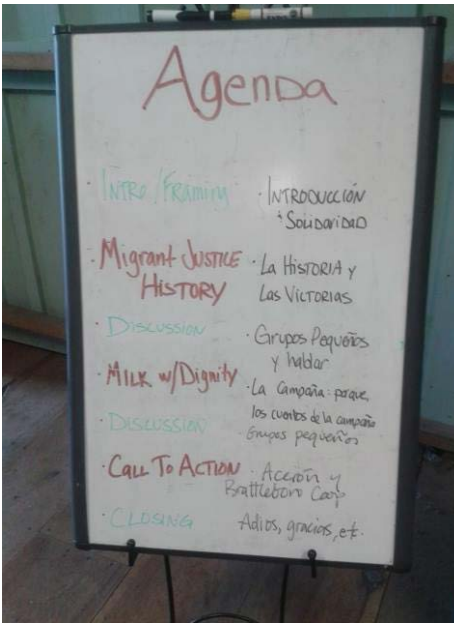 Agenda
· Intro/Framing
· INTRODUCCIÓN
y Solidaridad
· Migrant JUSTICE
HISTORY
· La HISTORIA y
Las VICTORIAS
· Discussion
· Grupos Pequeños
y hablar
· MILK w/Dignity
· La Campaña: porque,
los cuentos de la campaña
Grupos pequeños
· Discussion
· CALL TO ACTION
· Acción y
Brattleboro Coop
· CLOSING
Adios, gracias, etc.